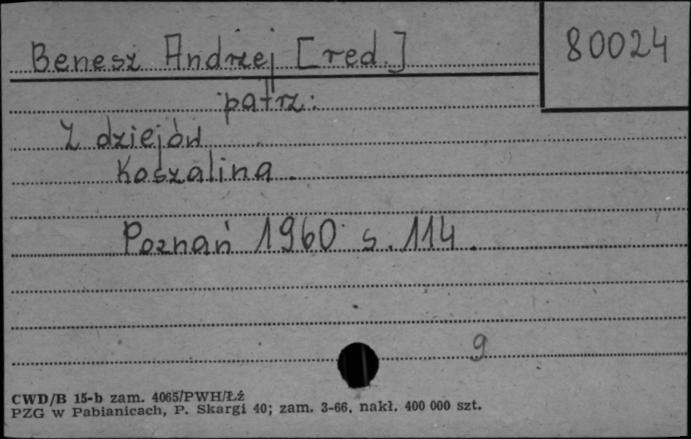 Benesz Andrzej [red.]
80024
patrz:
Z dziejów
Koszalina.
Poznań 1960 s. 114.
9
CWD/B 15-b zam. 4065/PWH/Łź
PZG w Pabianicach, P. Skargi 40; zam. 3-66, nakł. 400 000 szt.